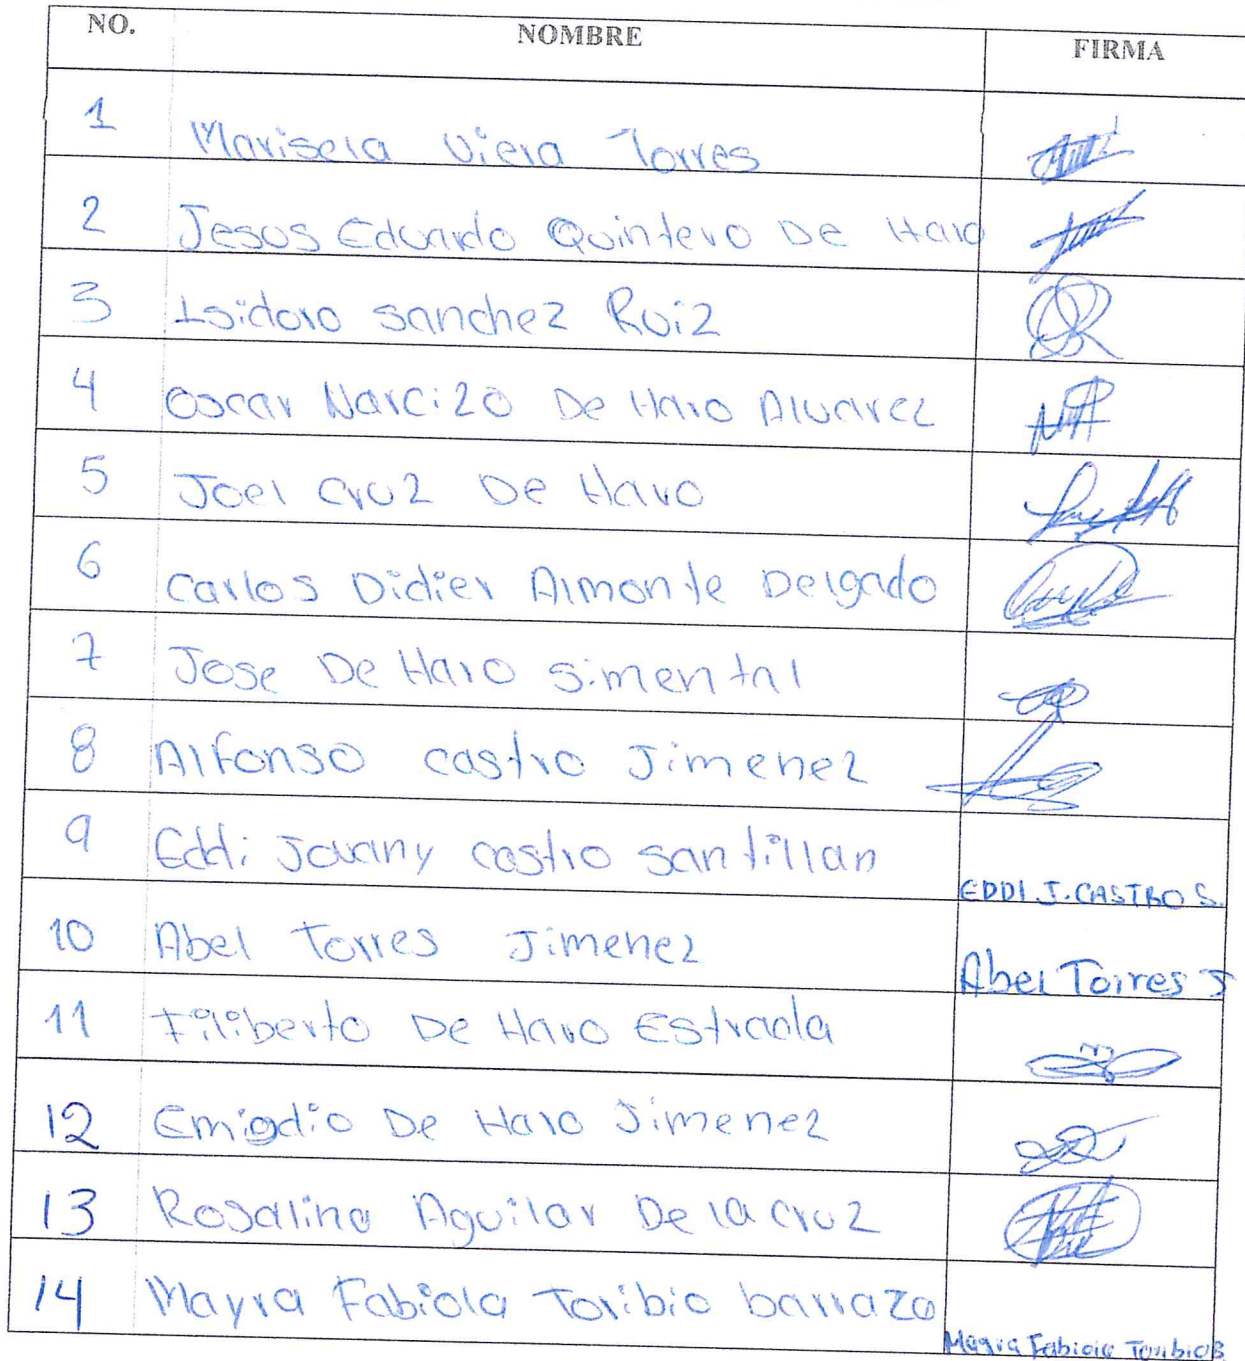 NO. NOMBRE FIRMA
1 Marisela Viera Torres
2 Jesus Eduardo Quintero De Haro
3 Isidoro Sanchez Ruiz
4 Oscar Narcizo De Haro Alvarez
5 Joel Cruz De Haro
6 Carlos Didier Almonte Delgado
7 Jose De Haro Simental
8 Alfonso castro Jimenez
9 Eddi Jovany castro santillan EDDI J. CASTRO S.
10 Abel Torres Jimenez Abel Torres J
11 Filiberto De Haro Estrada
12 Emigdio De Haro Jimenez
13 Rosalino Aguilar De la cruz
14 Mayra Fabiola Toribio barraza Mayra Fabiola Toribio B